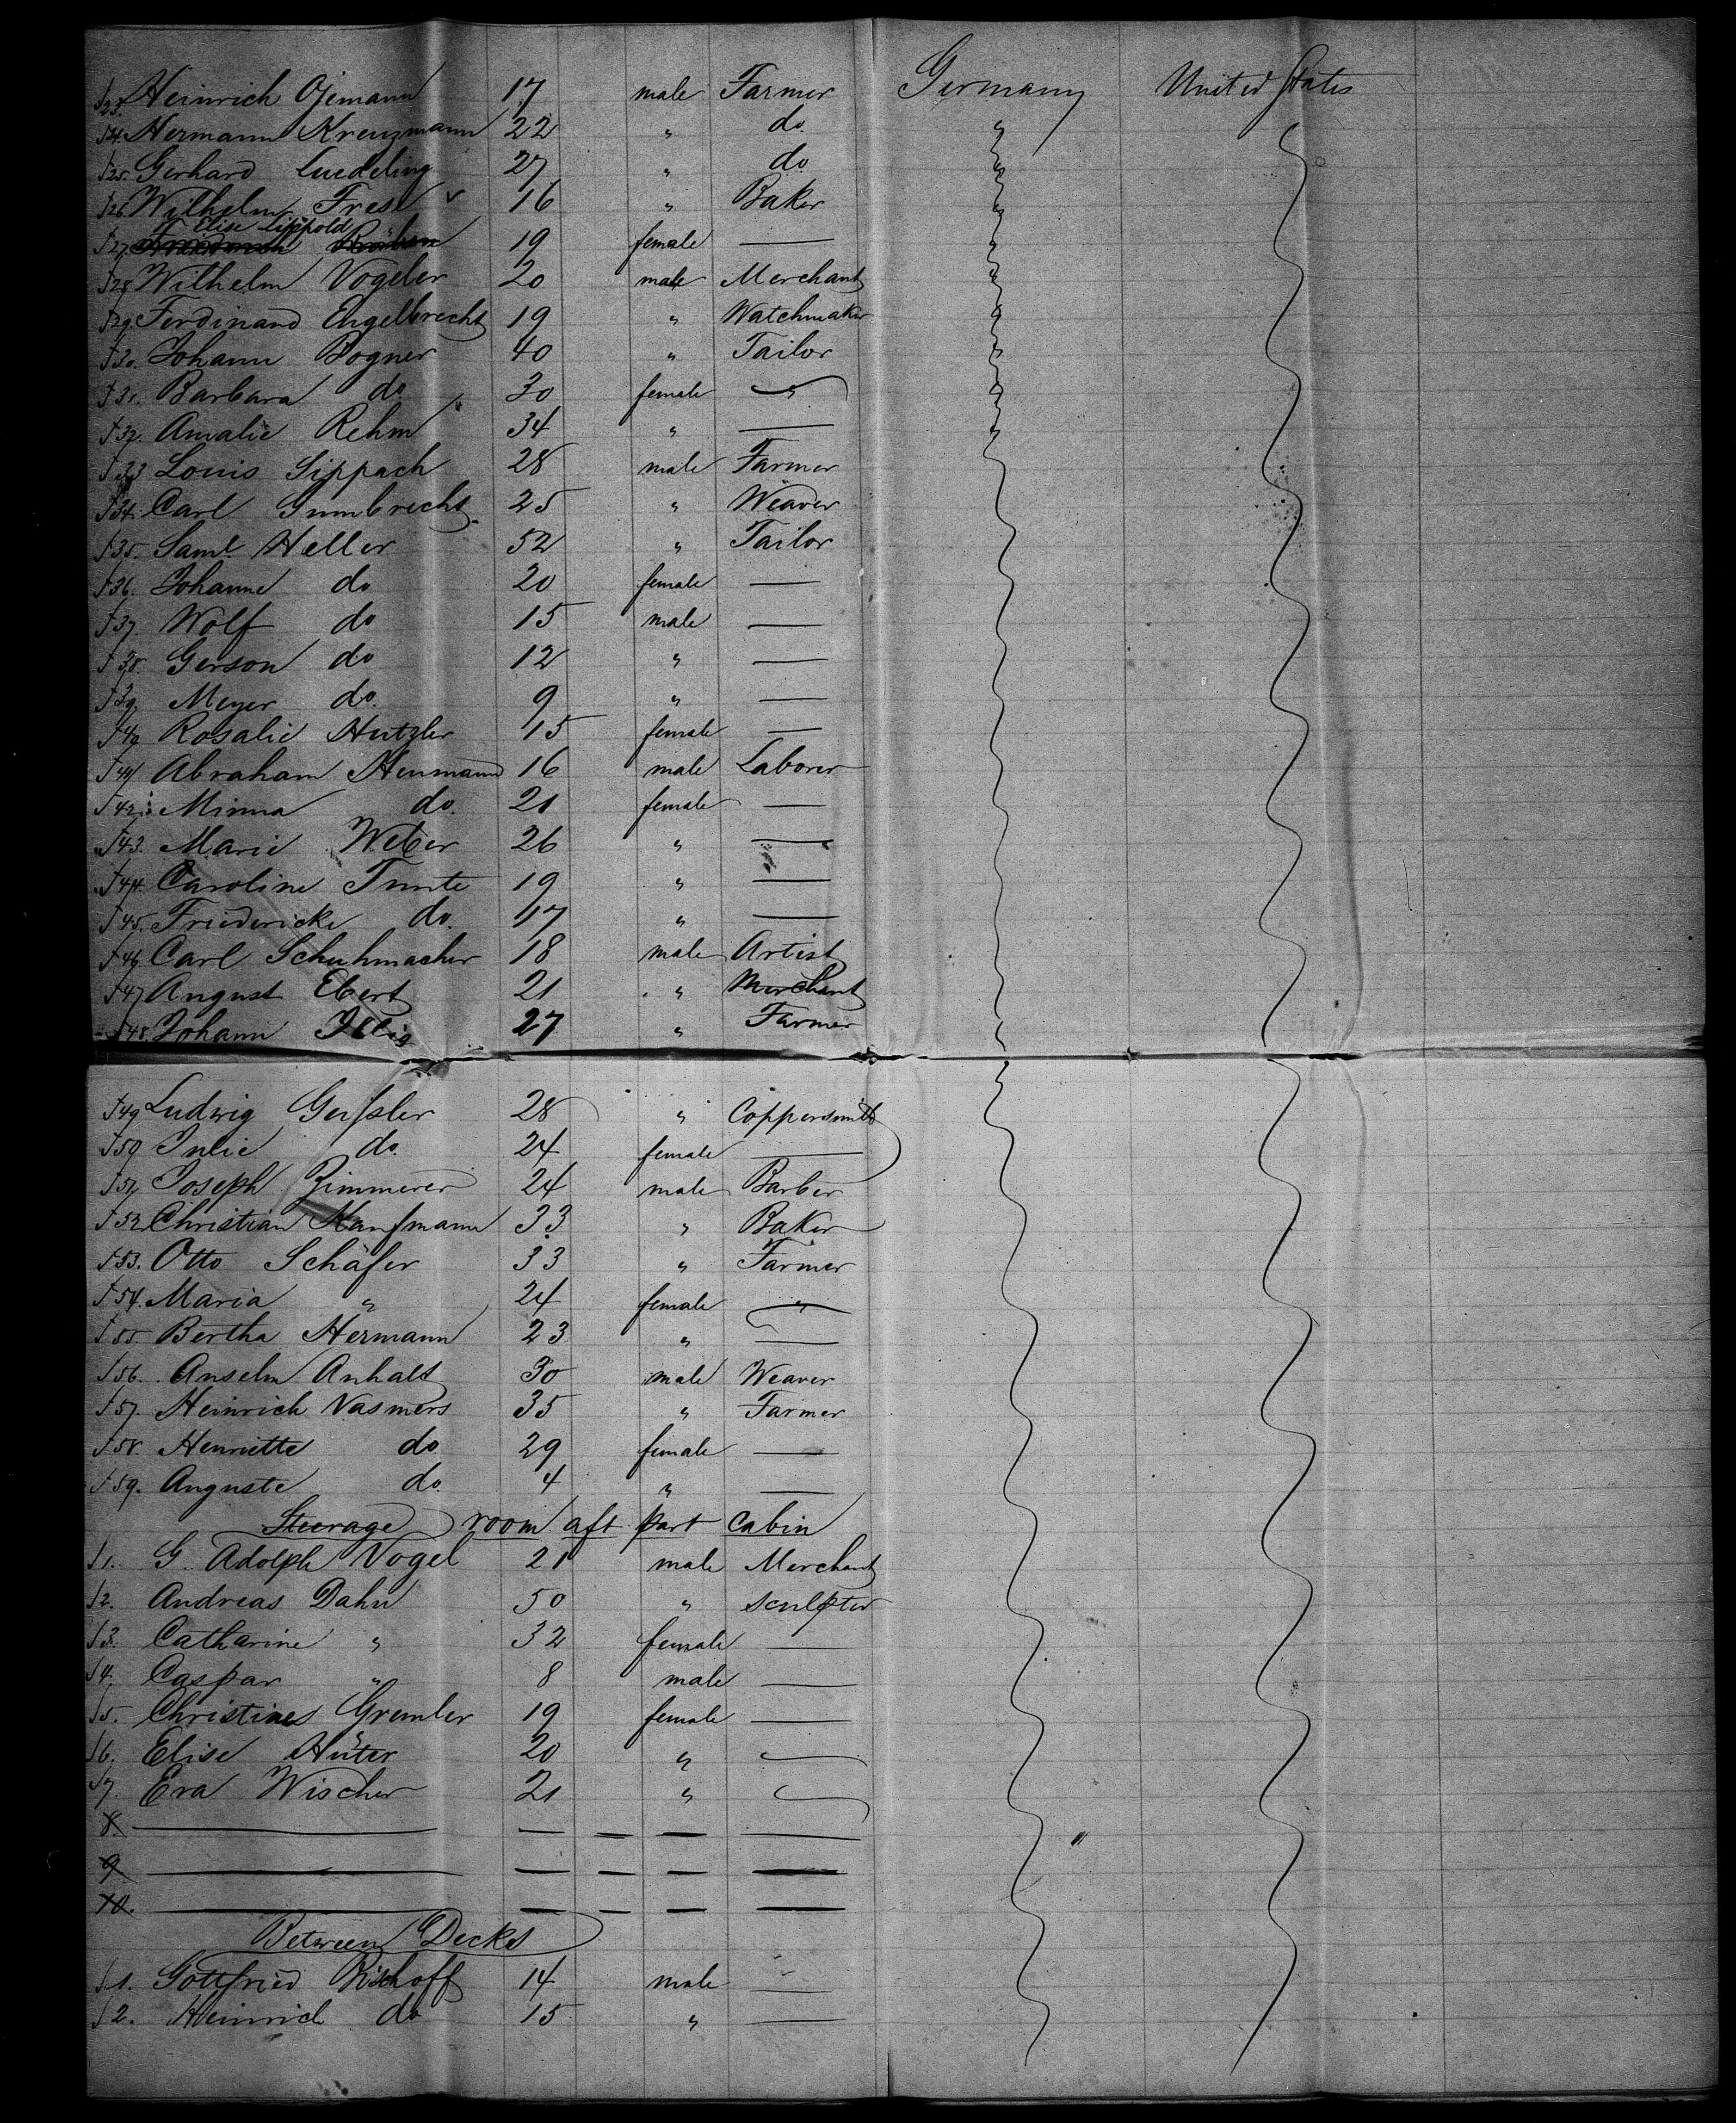 23. Heinrich Ojemann 17 male Farmer Germany United States
24. Hermann Kreuzmann 22 " do.
25. Gerhard Luedeling 27 " do
26. Wilhelm Frese 16 " Baker
Elise Lippold
27. 19 female —
28. Wilhelm Vogeler 20 male Merchant
29. Ferdinand Engelbrecht 19 " Watchmaker
30. Johann Bogner 40 " Tailor
31. Barbara do 30 female —
32. Amalie Rehm 34 " —
33 Louis Sippach 28 male Farmer
34. Carl Gumbrecht 25 " Weaver
35. Saml. Heller 52 " Tailor
36. Johanne do 20 female —
37. Wolf do 15 male —
38. Gerson do 12 " —
39. Meyer do. 9 " —
40 Rosalie Hutzler 15 female —
41 Abraham Heumann 16 male Laborer
42. Minna do. 21 female —
43. Marie Weber 26 " —
44. Caroline Tunte 19 " —
45. Friedericke do. 17 " —
46. Carl Schuhmacher 18 male Artist
47 August Ebert 21 " Merchant
48. Johann Illig 27 " Farmer
49 Ludwig Geißler 28 " Coppersmith
50 Julie do. 24 female —
51 Joseph Zimmerer 24 male Barber
52 Christian Kaufmann 33 " Baker
53. Otto Schäfer 33 " Farmer
54. Maria " 24 female "
55. Bertha Hermann 23 " —
56. Anselm Anhalt 30 male Weaver
57. Heinrich Vasmers 35 " Farmer
58. Henriette do 29 female —
59. Auguste do. 4 " —
Steerage room aft part Cabin
1. G. Adolph Vogel 21 male Merchant
2. Andreas Dahn 50 " Sculpter
3. Catharine " 32 female —
4. Caspar " 8 male —
5. Christines Gremler 19 female —
6. Elise Hüter 20 " —
7. Eva Wischer 21 " —
8. — — — — —
9 — — — — —
10. — — — — —
Between Decks
1. Gottfried Bischoff 14 male —
2. Heinrich do 15 " —